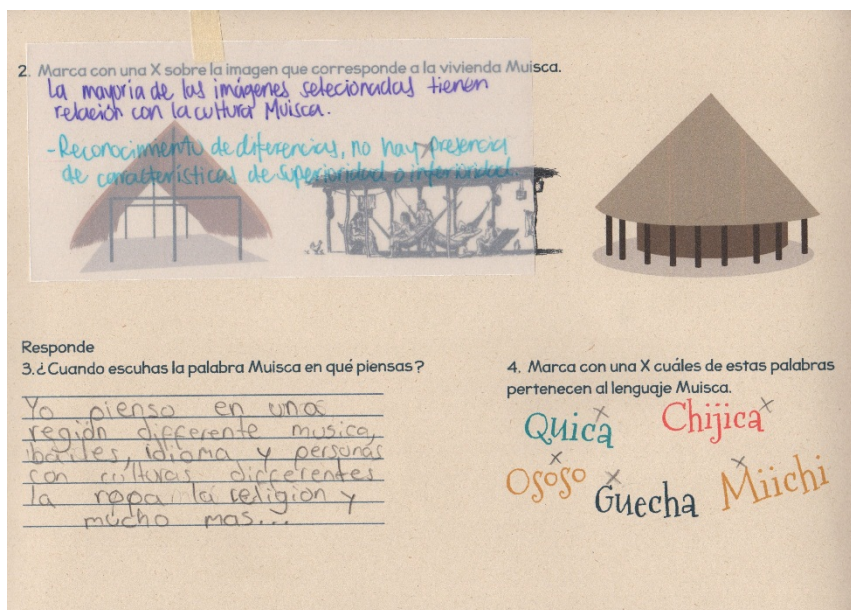 2. Marca con una X sobre la imagen que corresponde a la vivienda Muisca.
La mayoria de las imágenes selecionadas tienen
relación con la cultura Muisca.
-Reconocimiento de diferencias, no hay presencia
de características de superioridad o inferioridad.
Responde
3.¿Cuando escuhas la palabra Muisca en qué piensas?
Yo pienso en unas
región differente musica,
bailes, idioma y personas
con culturas differentes
la ropa la religión y
mucho mas...
4. Marca con una X cuáles de estas palabras
pertenecen al lenguaje Muisca.
Quica X Chijica X
Ososo X Guecha X Miichi X